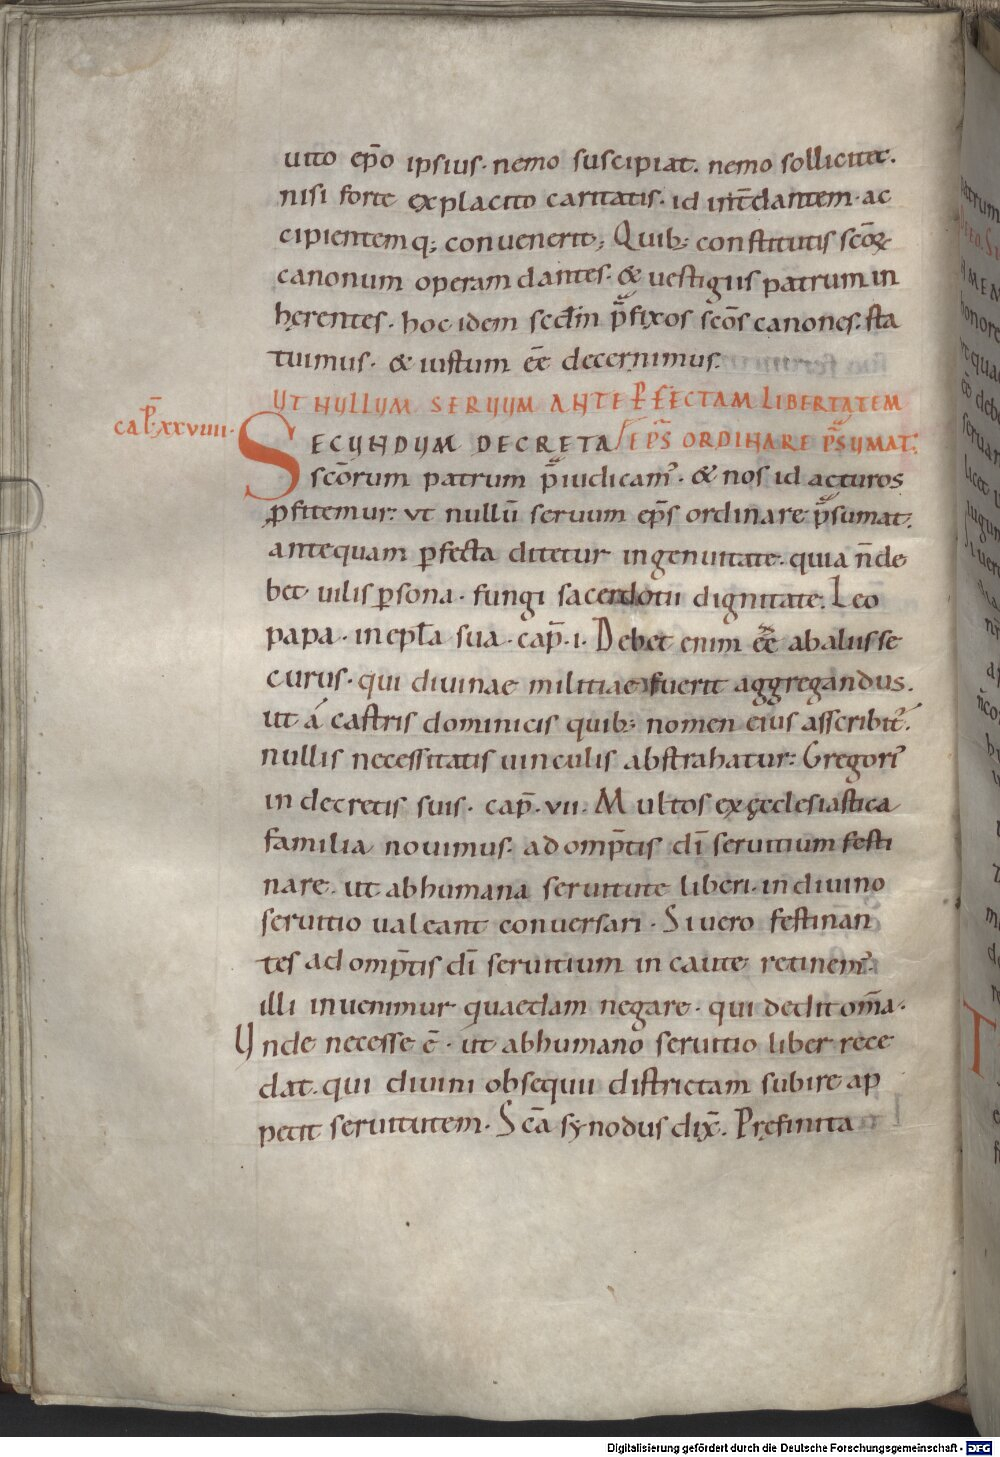 uito ep̄o ipsius· nemo suscipiat. nemo sollicitet.
nisi forte ex placito caritatis· id int̄ dantem· ac
cipientemq; convenerit; Quib; constitutis sc̄oꝝ
canonum operam dantes· & vestigiis patrum in
herentes· hoc idem secd̄m p̄fixos sc̄os canones· sta
tuimus· & iustum ēē decernimus.
UT NULLUM SERUUM ANTE P̄FECTAM LIBERTATEM
cap̄ xxviiii·
SECUNDUM DECRETA / EP̄S ORDINARE P̄SUMAT;
sc̄orum patrum p̄iudicam᾽· & nos id acturos
ꝓfitemur: ut nullū servum ep̄s ordinare p̄sumat.
antequam ꝑfecta ditetur ingenuitate· quia n̄ de
bet vilis ꝑsona· fungi sacerdotii dignitate. Leo
papa· in ep̄ła sua· cap̄· i· Debet enim ēē ab aliis se
curus· qui divinae militiae fuerit aggregandus.
ut á castris dominicis quib; nomen eius asscribit᾽.
nullis necessitatis vinculis abstrahatur: Gregori᾽
in decretis suis· cap̄· vii· Multos ex ęcclesiastica
familia novimus· ad omp̄tis dī servitium festi
nare· ut ab humana servitute liberi· in divino
servitio valeant conversari· Si vero festinan
tes ad omp̄tis dī servitium incaute retinem᾽·
illi invenimur quaedam negare· qui dedit om̄a·
Unde necesse ē· ut ab humano servitio liber rece
dat· qui divini obsequii districtam subire ap
petit servitutem· Sc̄a synodus dix̄. Pręfinita
Digitalisierung gefördert durch die Deutsche Forschungsgemeinschaft - DFG